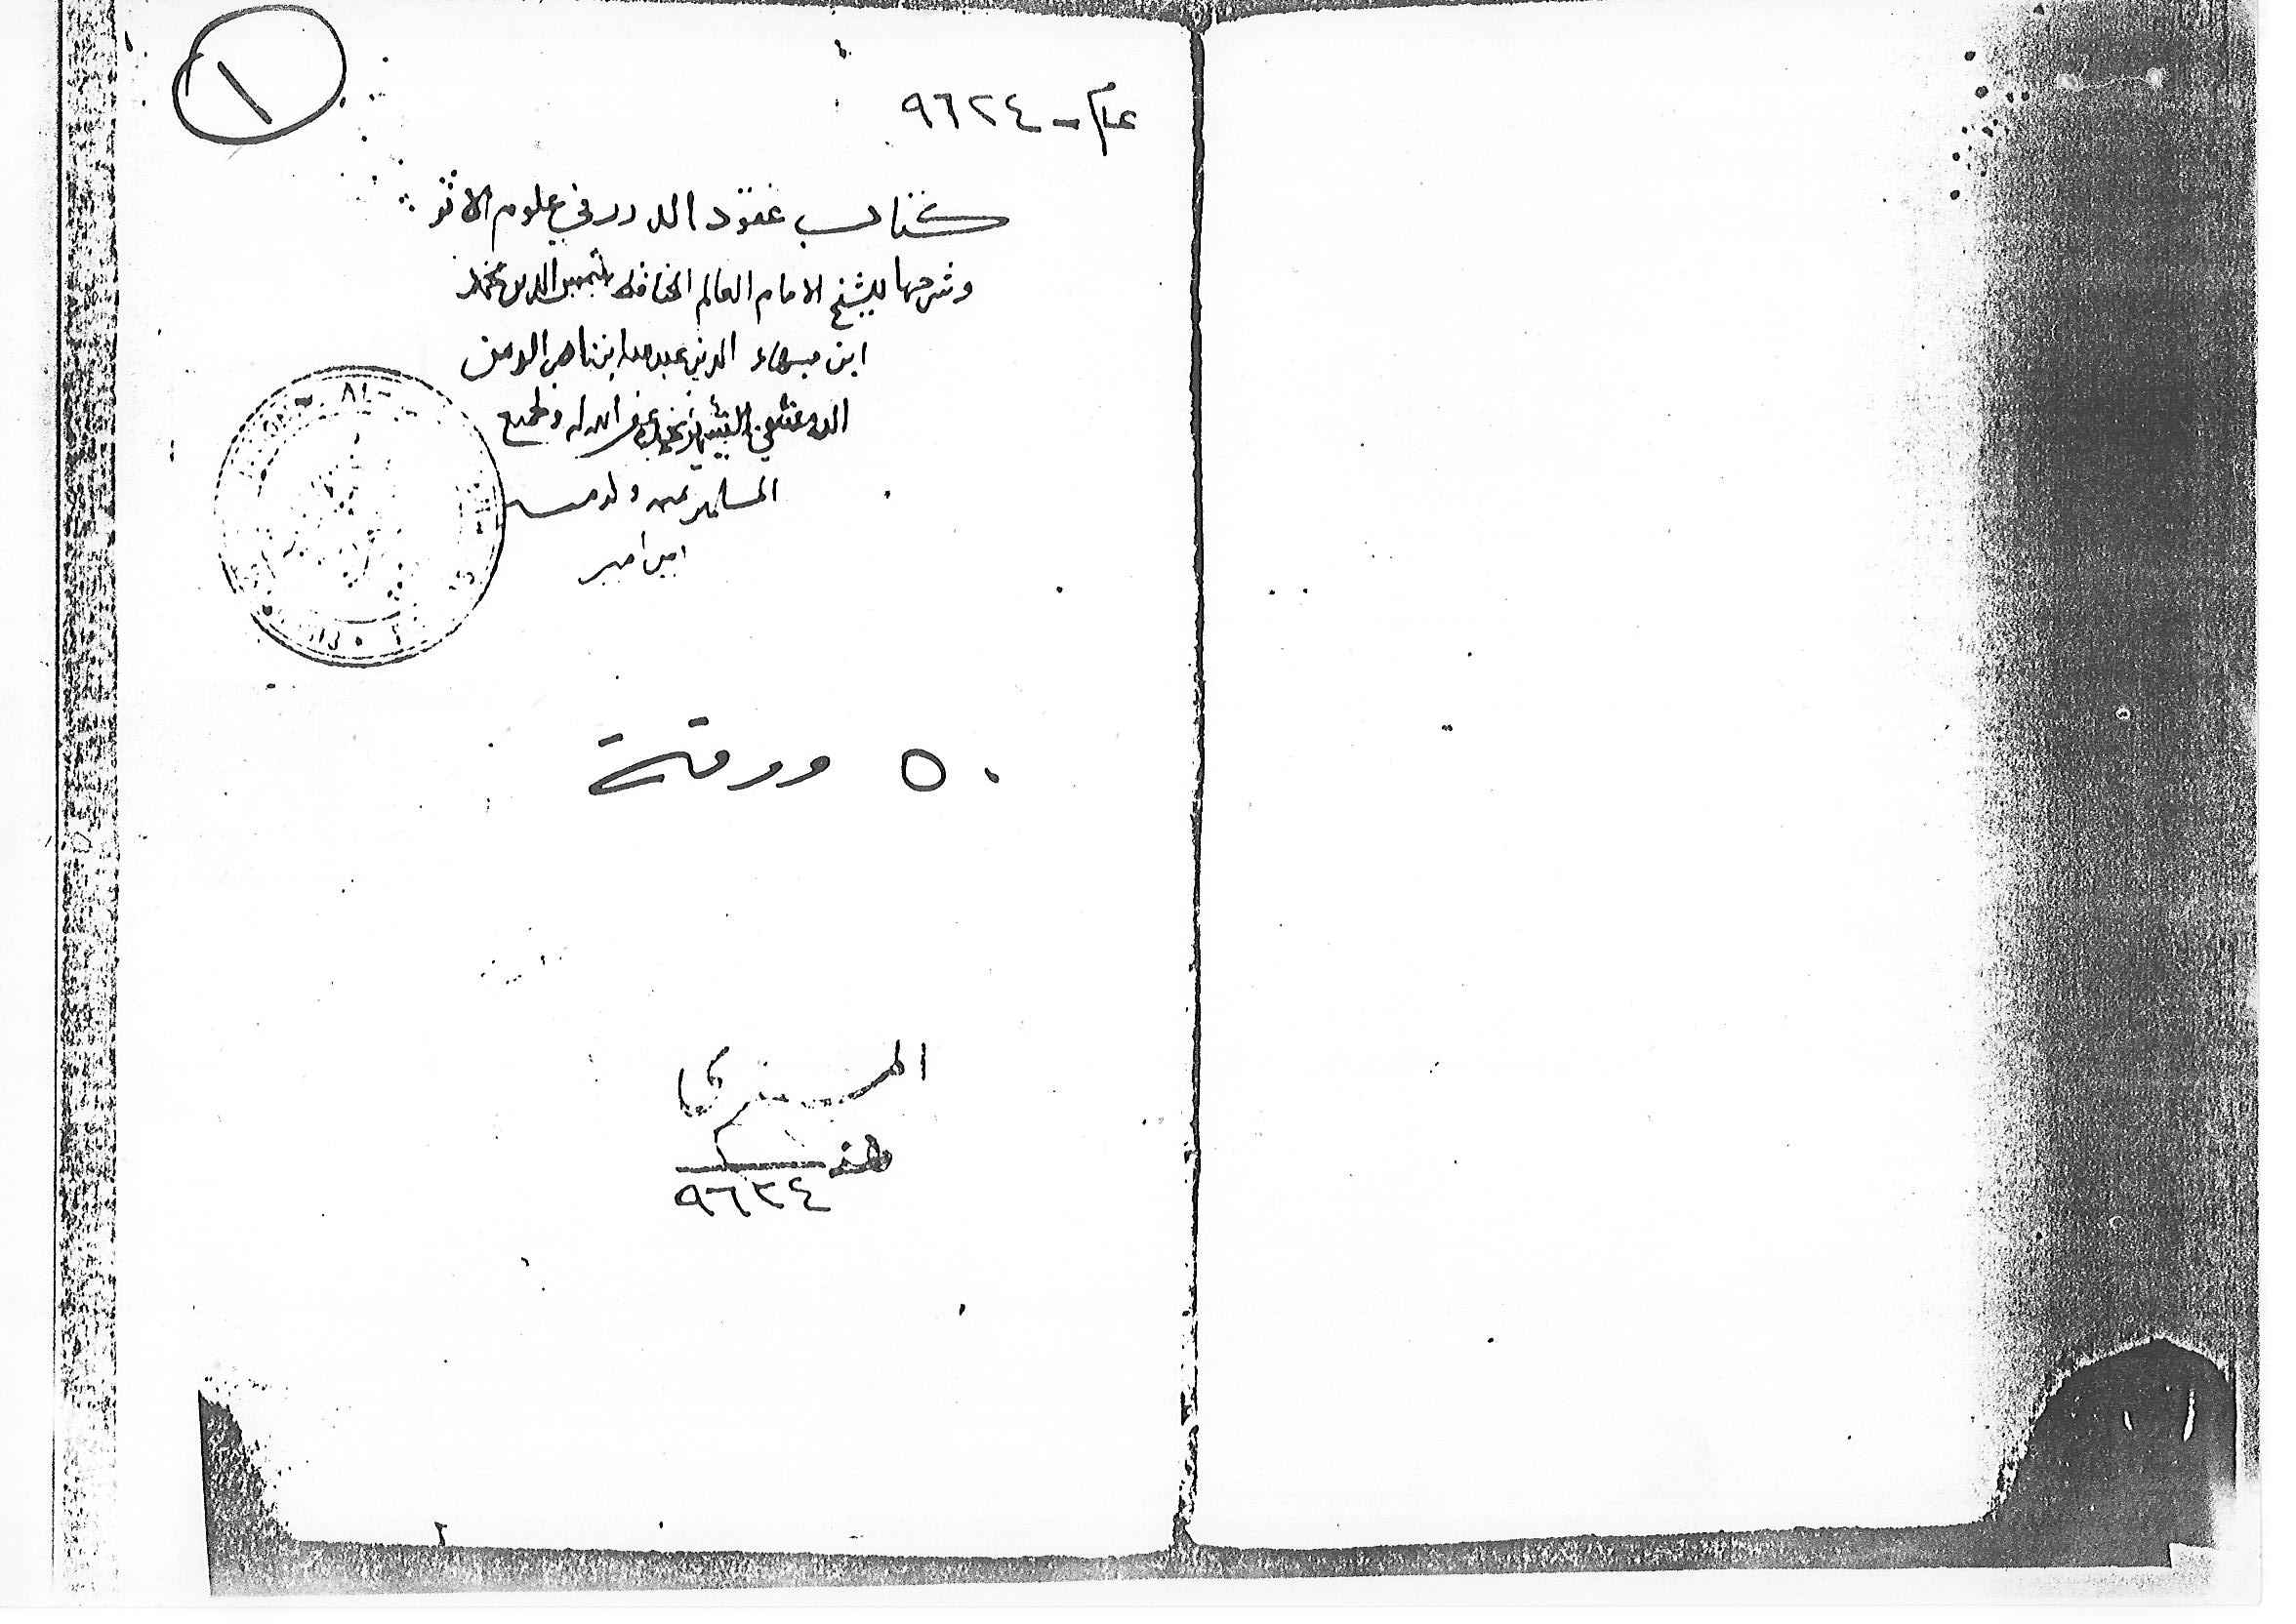 ١
عام - ٩٦٢٤
كتاب عقود الدرر في علوم الاثر
وشرحها للشيخ الامام العالم الحافظ شمس الدين محمد
ابن بهاء الدين عبد الله ابن ناصر الدين
الدمشقي الشهير غفر الله له ولجميع
المسلمين
امين امين
٥٠ ورقة
٩٦٢٤